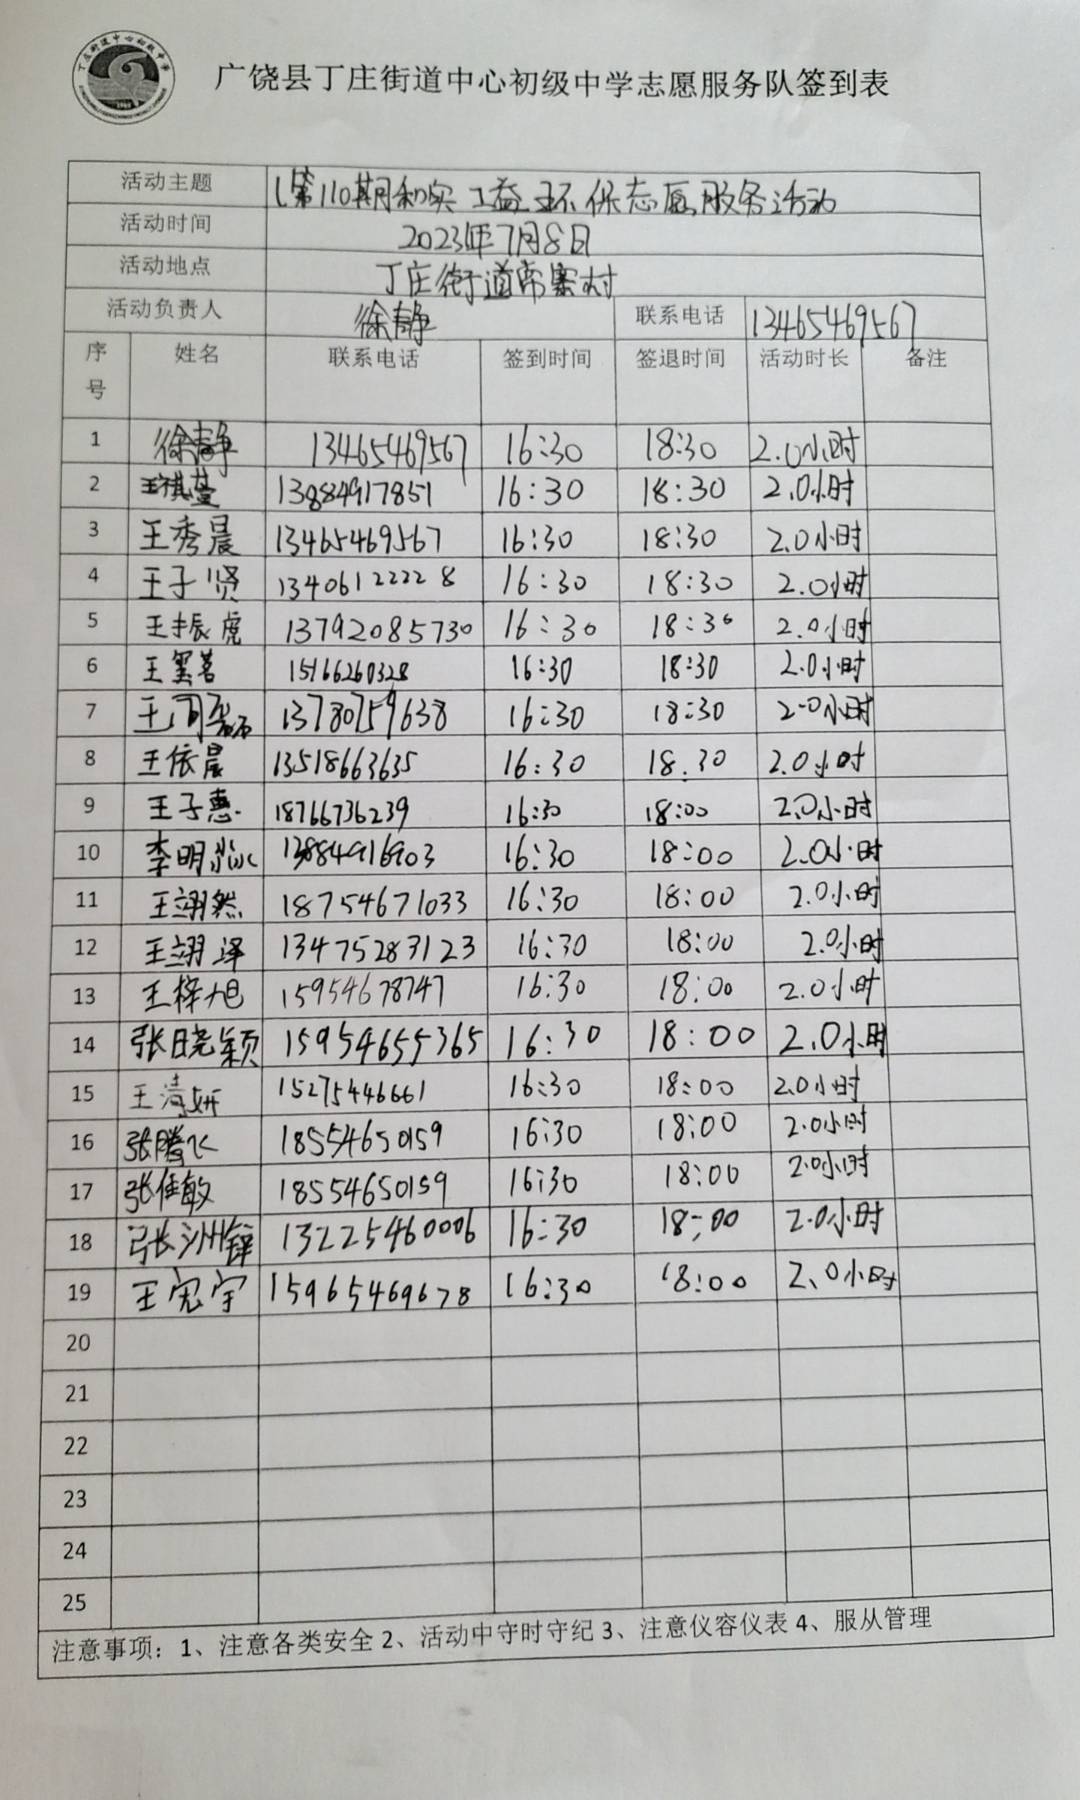 广饶县丁庄街道中心初级中学志愿服务队签到表
活动主题 (第110期和实 工益环保志愿服务活动
活动时间 2023年7月8日
活动地点 丁庄街道常寨村
活动负责人 徐静 联系电话 13465469567
序号 姓名 联系电话 签到时间 签退时间 活动时长 备注
1 徐静 13465469567 16:30 18:30 2.0小时
2 王祺蔓 13884917851 16:30 18:30 2.0小时
3 王秀晨 13465469567 16:30 18:30 2.0小时
4 王子贤 13406122228 16:30 18:30 2.0小时
5 王振虎 13792085730 16:30 18:30 2.0小时
6 15166260328 16:30 18:30 2.0小时
7 13780759638 16:30 18:30 2.0小时
8 王依晨 13518663635 16:30 18.30 2.0小时
9 王子惠 18766736239 16:30 18:00 2.0小时
10 李明淼 13884916903 16:30 18:00 2.0小时
11 王翊然 18754671033 16:30 18:00 2.0小时
12 王翊泽 13475283123 16:30 18:00 2.0小时
13 王梓旭 15954678747 16:30 18:00 2.0小时
14 张晓颖 15954655365 16:30 18:00 2.0小时
15 王清妍 15275446661 16:30 18:00 2.0小时
16 张腾飞 18554650159 16:30 18:00 2.0小时
17 张佳敏 18554650159 16:30 18:00 2.0小时
18 张洲铎 13225460006 16:30 18:00 2.0小时
19 王宪宇 15965469678 16:30 18:00 2.0小时
20
21
22
23
24
25
注意事项：1、注意各类安全 2、活动中守时守纪 3、注意仪容仪表 4、服从管理